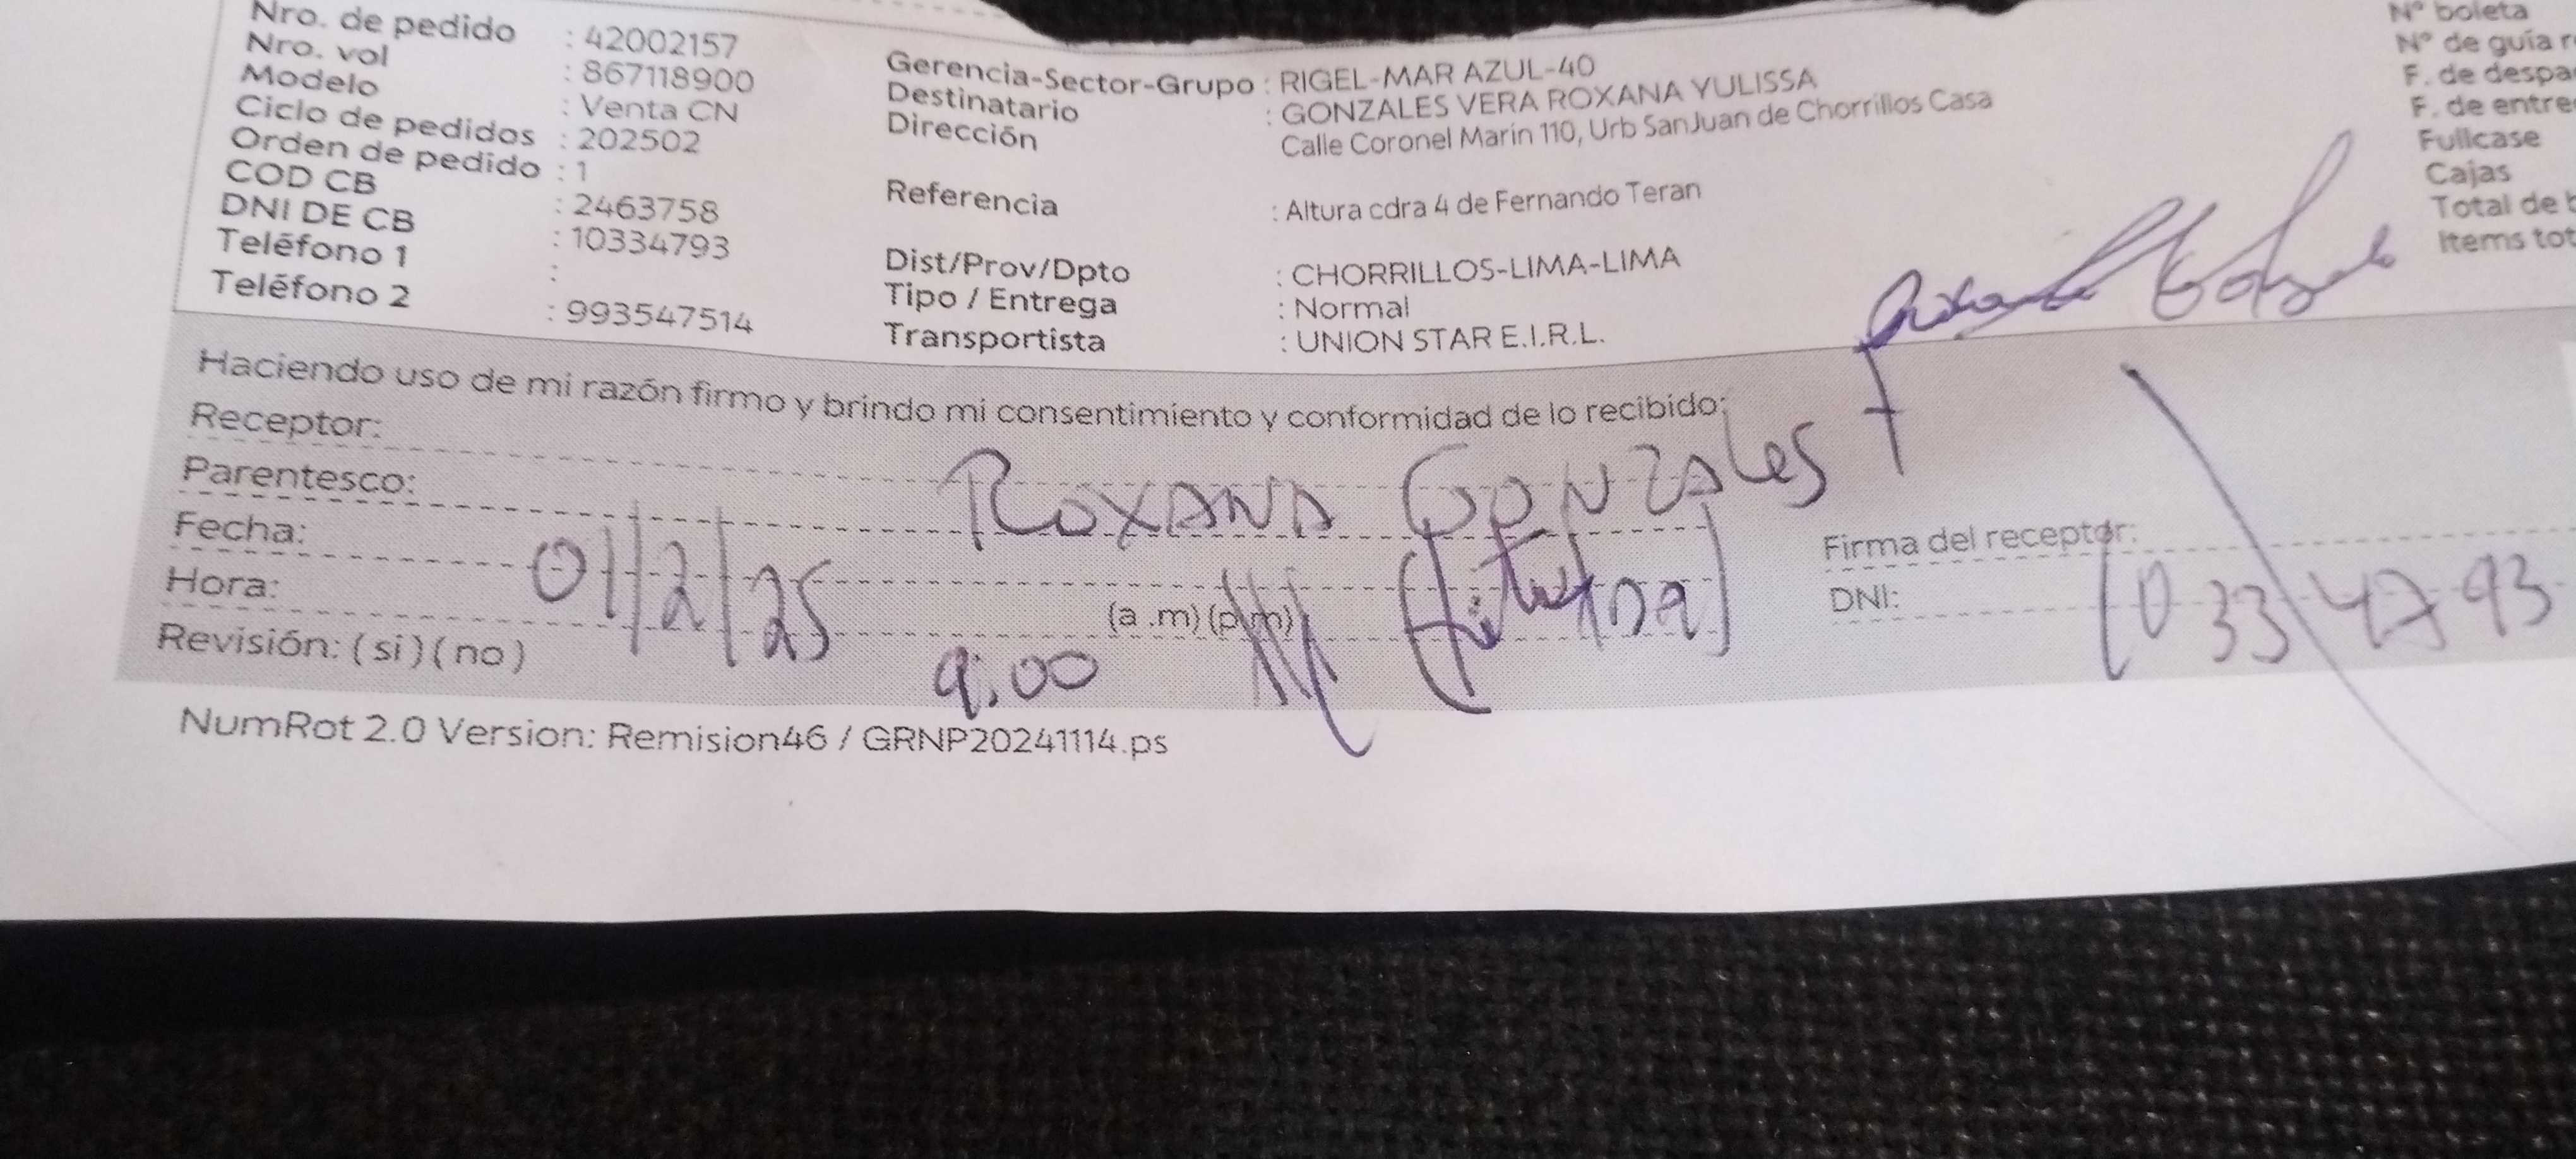 Nro. de pedido : 42002157
Nro. vol : 867118900
Modelo : Venta CN
Ciclo de pedidos : 202502
Orden de pedido : 1
COD CB : 2463758
DNI DE CB : 10334793
Teléfono 1 :
Teléfono 2 : 993547514
Gerencia-Sector-Grupo : RIGEL-MAR AZUL-40
Destinatario : GONZALES VERA ROXANA YULISSA
Dirección Calle Coronel Marin 110, Urb SanJuan de Chorrillos Casa
Referencia : Altura cdra 4 de Fernando Teran
Dist/Prov/Dpto : CHORRILLOS-LIMA-LIMA
Tipo / Entrega : Normal
Transportista : UNION STAR E.I.R.L.
N° boleta
N° de guía
F. de
F. de
Fullcase
Cajas
Total de
Items
Haciendo uso de mi razón firmo y brindo mi consentimiento y conformidad de lo recibido:
Receptor: ROXANA GONZALES
Parentesco:
Fecha: 01/2/25
Hora: 9:00 (a .m) (p.m)
Revisión: ( si ) ( no )
Firma del receptor:
DNI: 10334793
NumRot 2.0 Version: Remision46 / GRNP20241114.ps